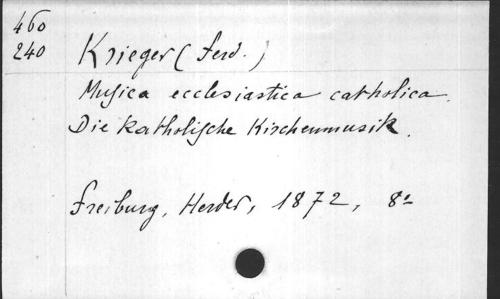 460
240
Krieger (Ferd.)
Musica ecclesiastica catholica.
Die katholische Kirchenmusik.
Freiburg, Herder, 1872, 8º